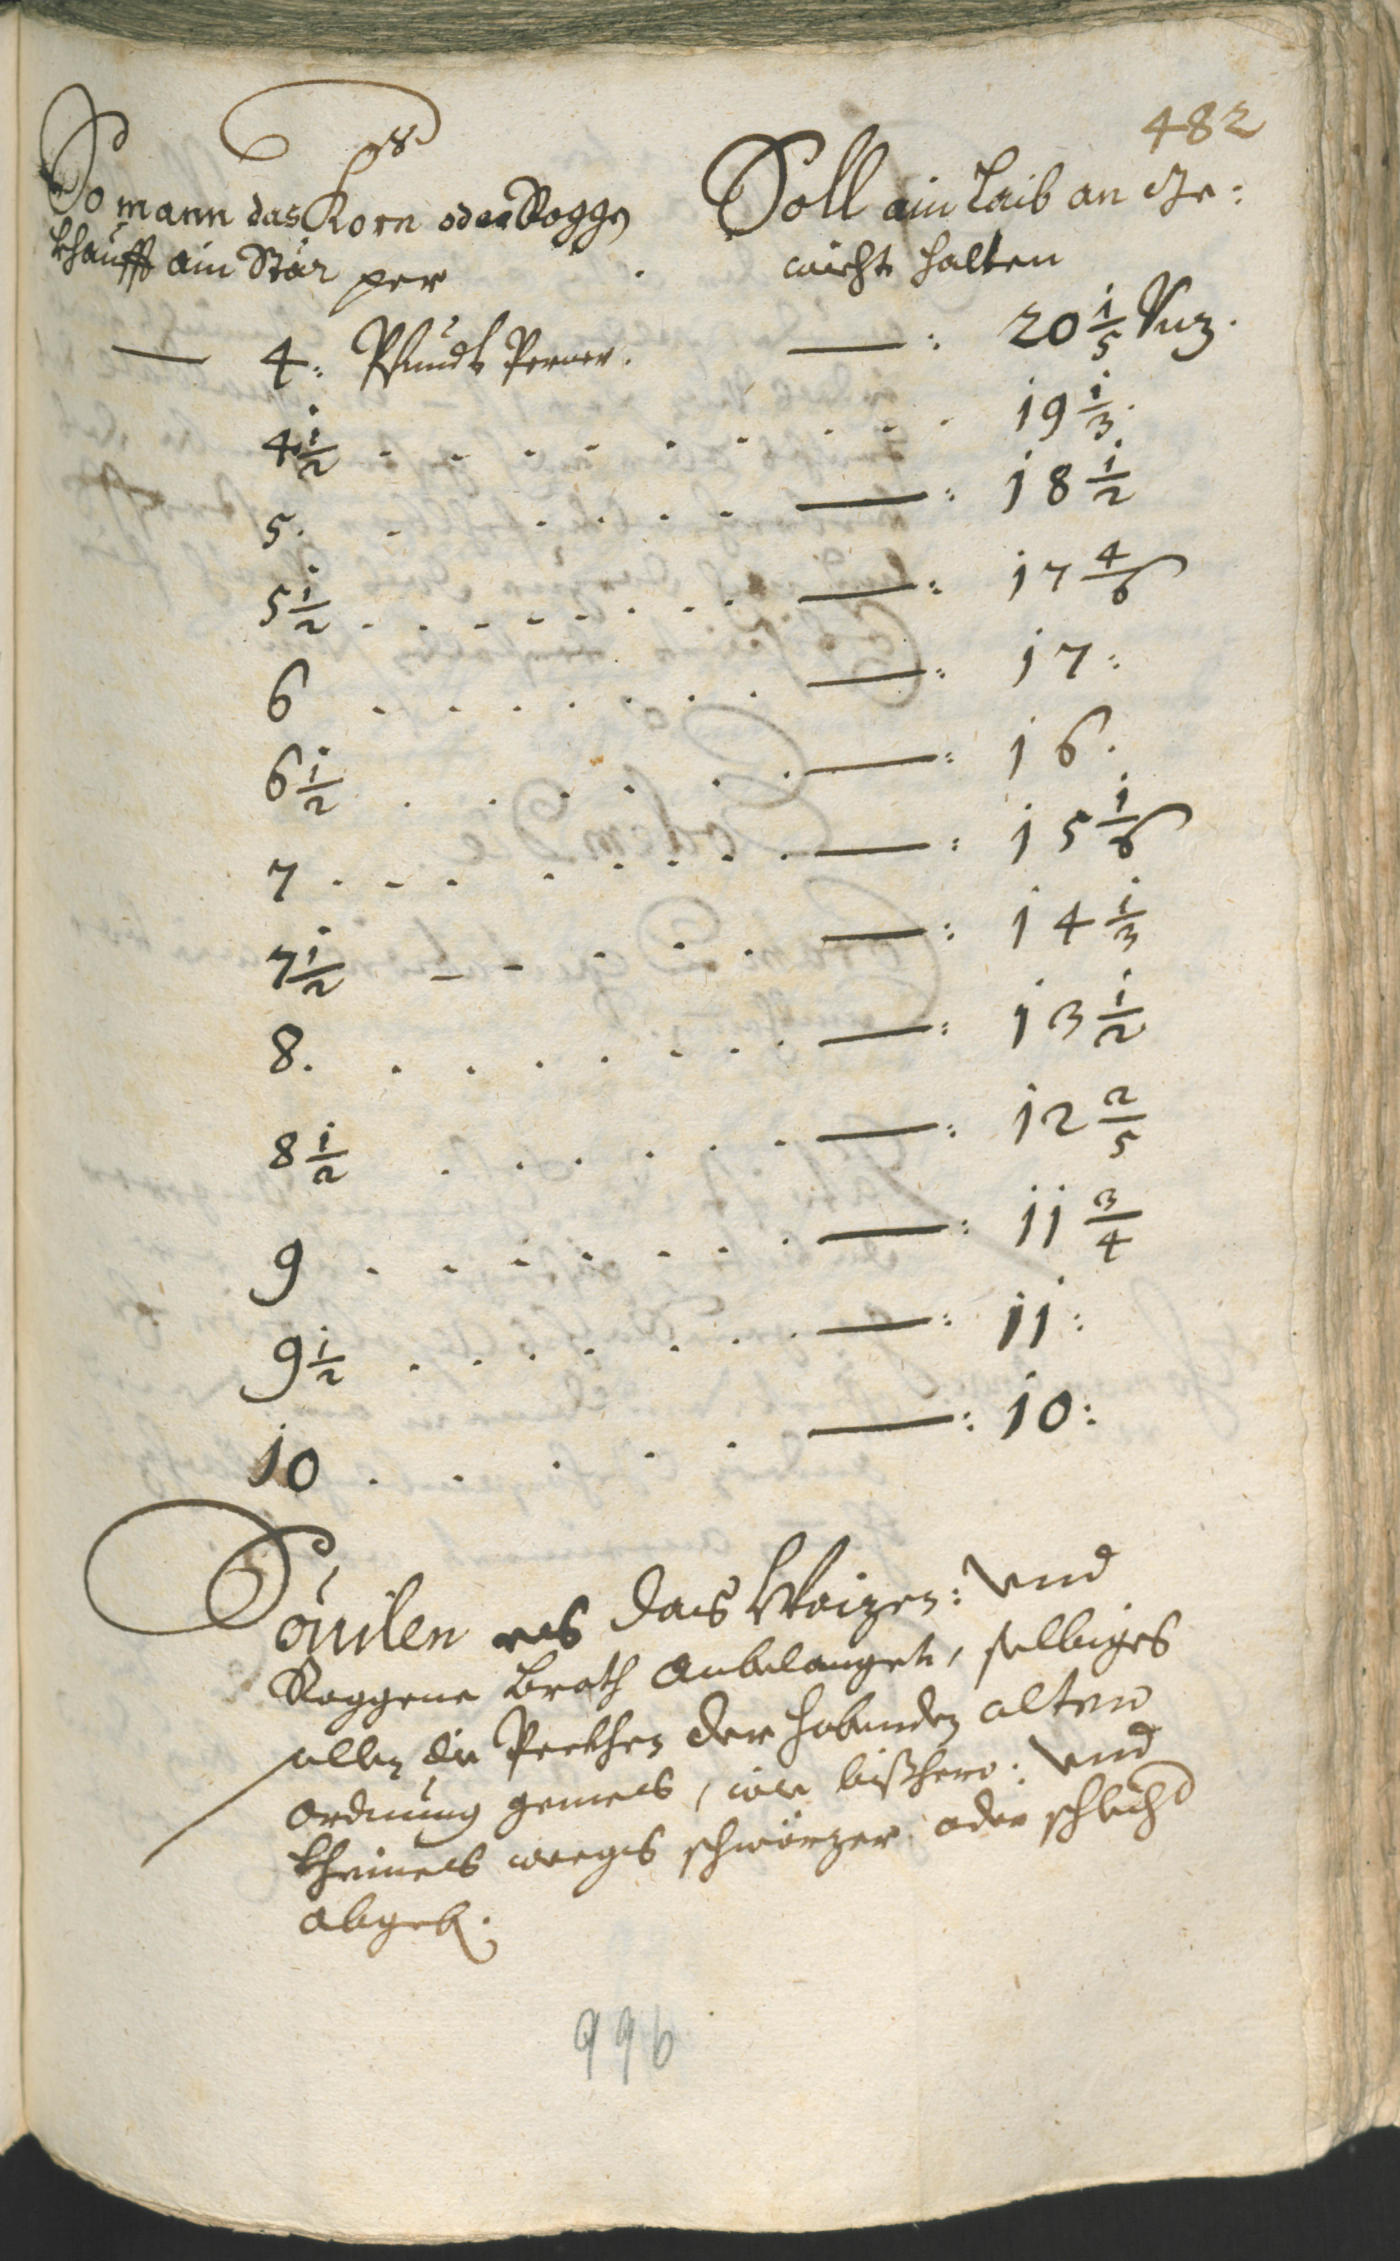 482
So mann das Korn oder Roggen
khaufft ain Stär per
Soll ain Laib an Ge:
wicht halten
4: Pfundt Perner. : 20 1/5 Unz.
4 1/2 19 1/3.
5. : 18 1/2
5 1/2 : 17 4/6
6 : 17:
6 1/2 : 16.
7 : 15 1/6
7 1/2 : 14 1/3
8. : 13 1/2
8 1/2 : 12 2/5
9 : 11 3/4
9 1/2 : 11:
10 : 10:
das Waizen: und
Roggene Broth anbelanget, selbiges
sollen die Peckhen der habenden alten
ordnung gemeß, wie bißhero: und
kheines weegs schwörzer oder schlecht
abgeb.
996